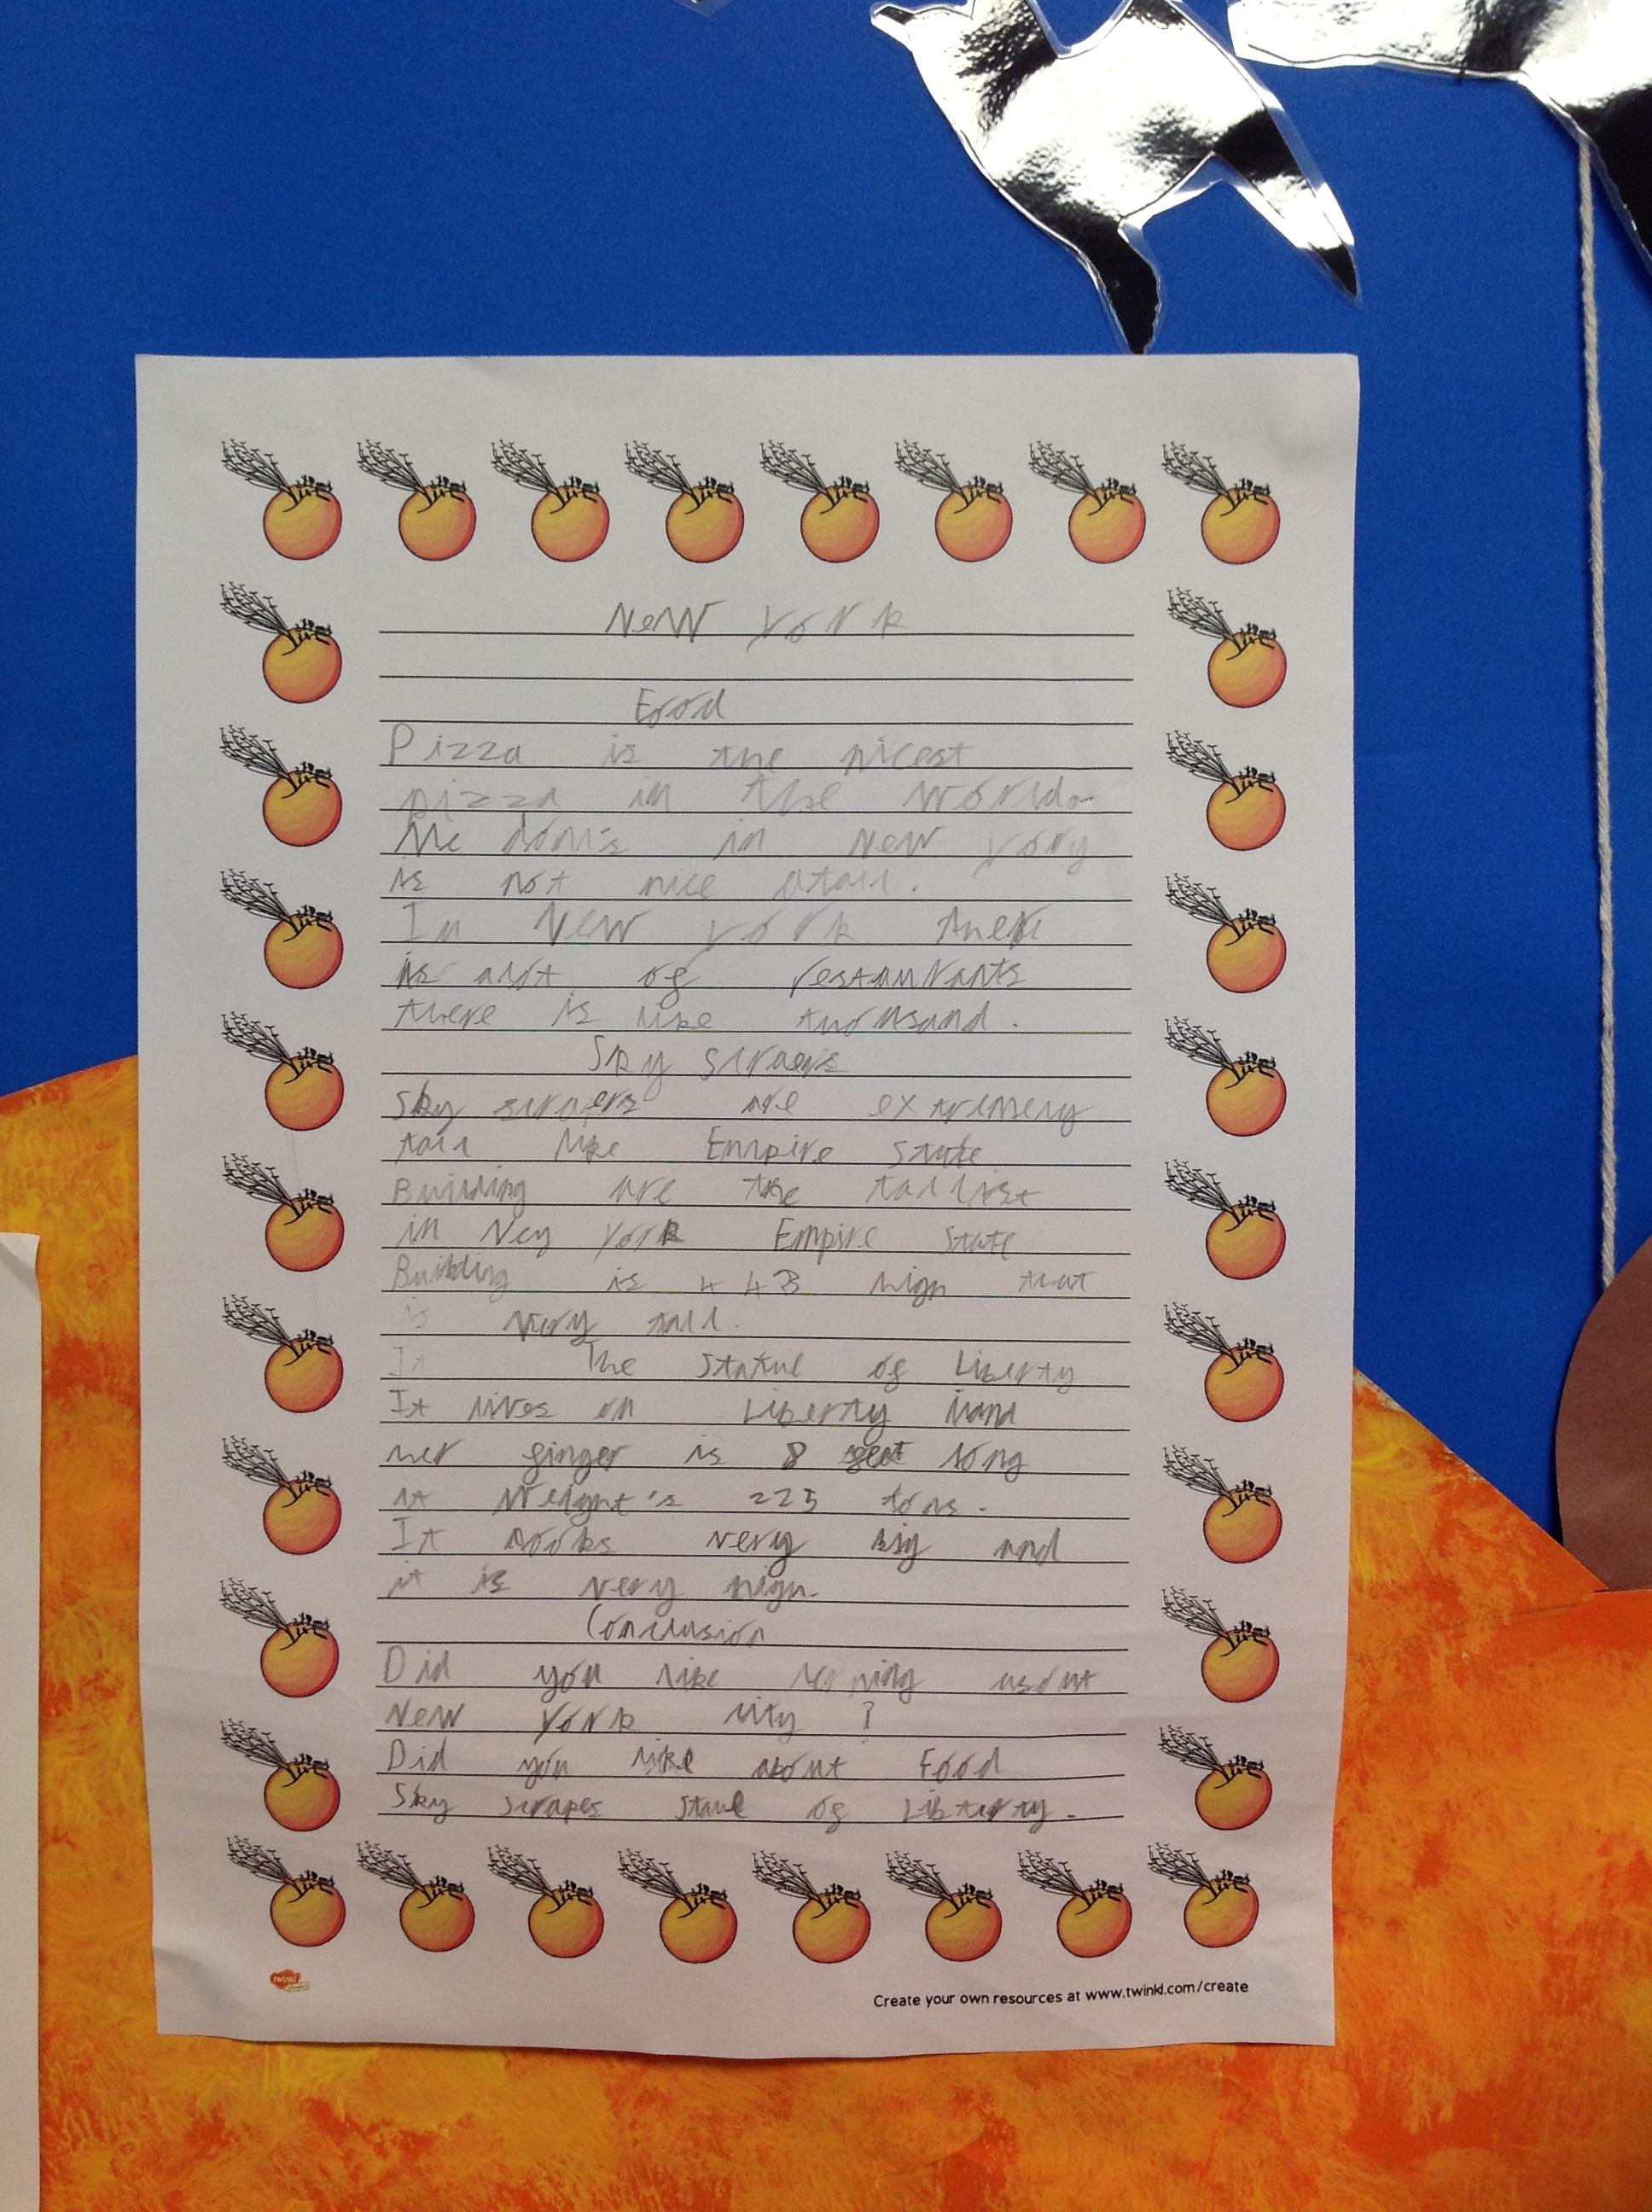 New york
Food
Pizza is the nicest
pizza in the world.
Mc don's in New yory
is not nice atall.
In New york there
is alot of restaurants
there is like thousand.
Sky scraers
Sky scrapers are extremely
tall like Empire State
Building are the tallist
in Ney york Empire State
Building is 443 high that
is Very tall.
It The Statue of Liberty
It lives on Liberty iland
her finger is 8 feet long
it Weight's 225 tons.
It looks very big and
it is very high.
Conclusion
Did you like about
New york city ?
Did you like about Food
Sky scrapes staue of Libterty.
twinkl
Create your own resources at www.twinkl.com/create